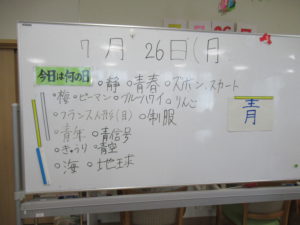 7月26日(月
今日は何の日
○静 ○青春 ○ズボン、スカート
○ピーマン ○ブルーハワイ ○りんご
○フランス人形(目) ○制服
○青年 ○青信号
○きゅうり ○青空
○海 ○地球
青